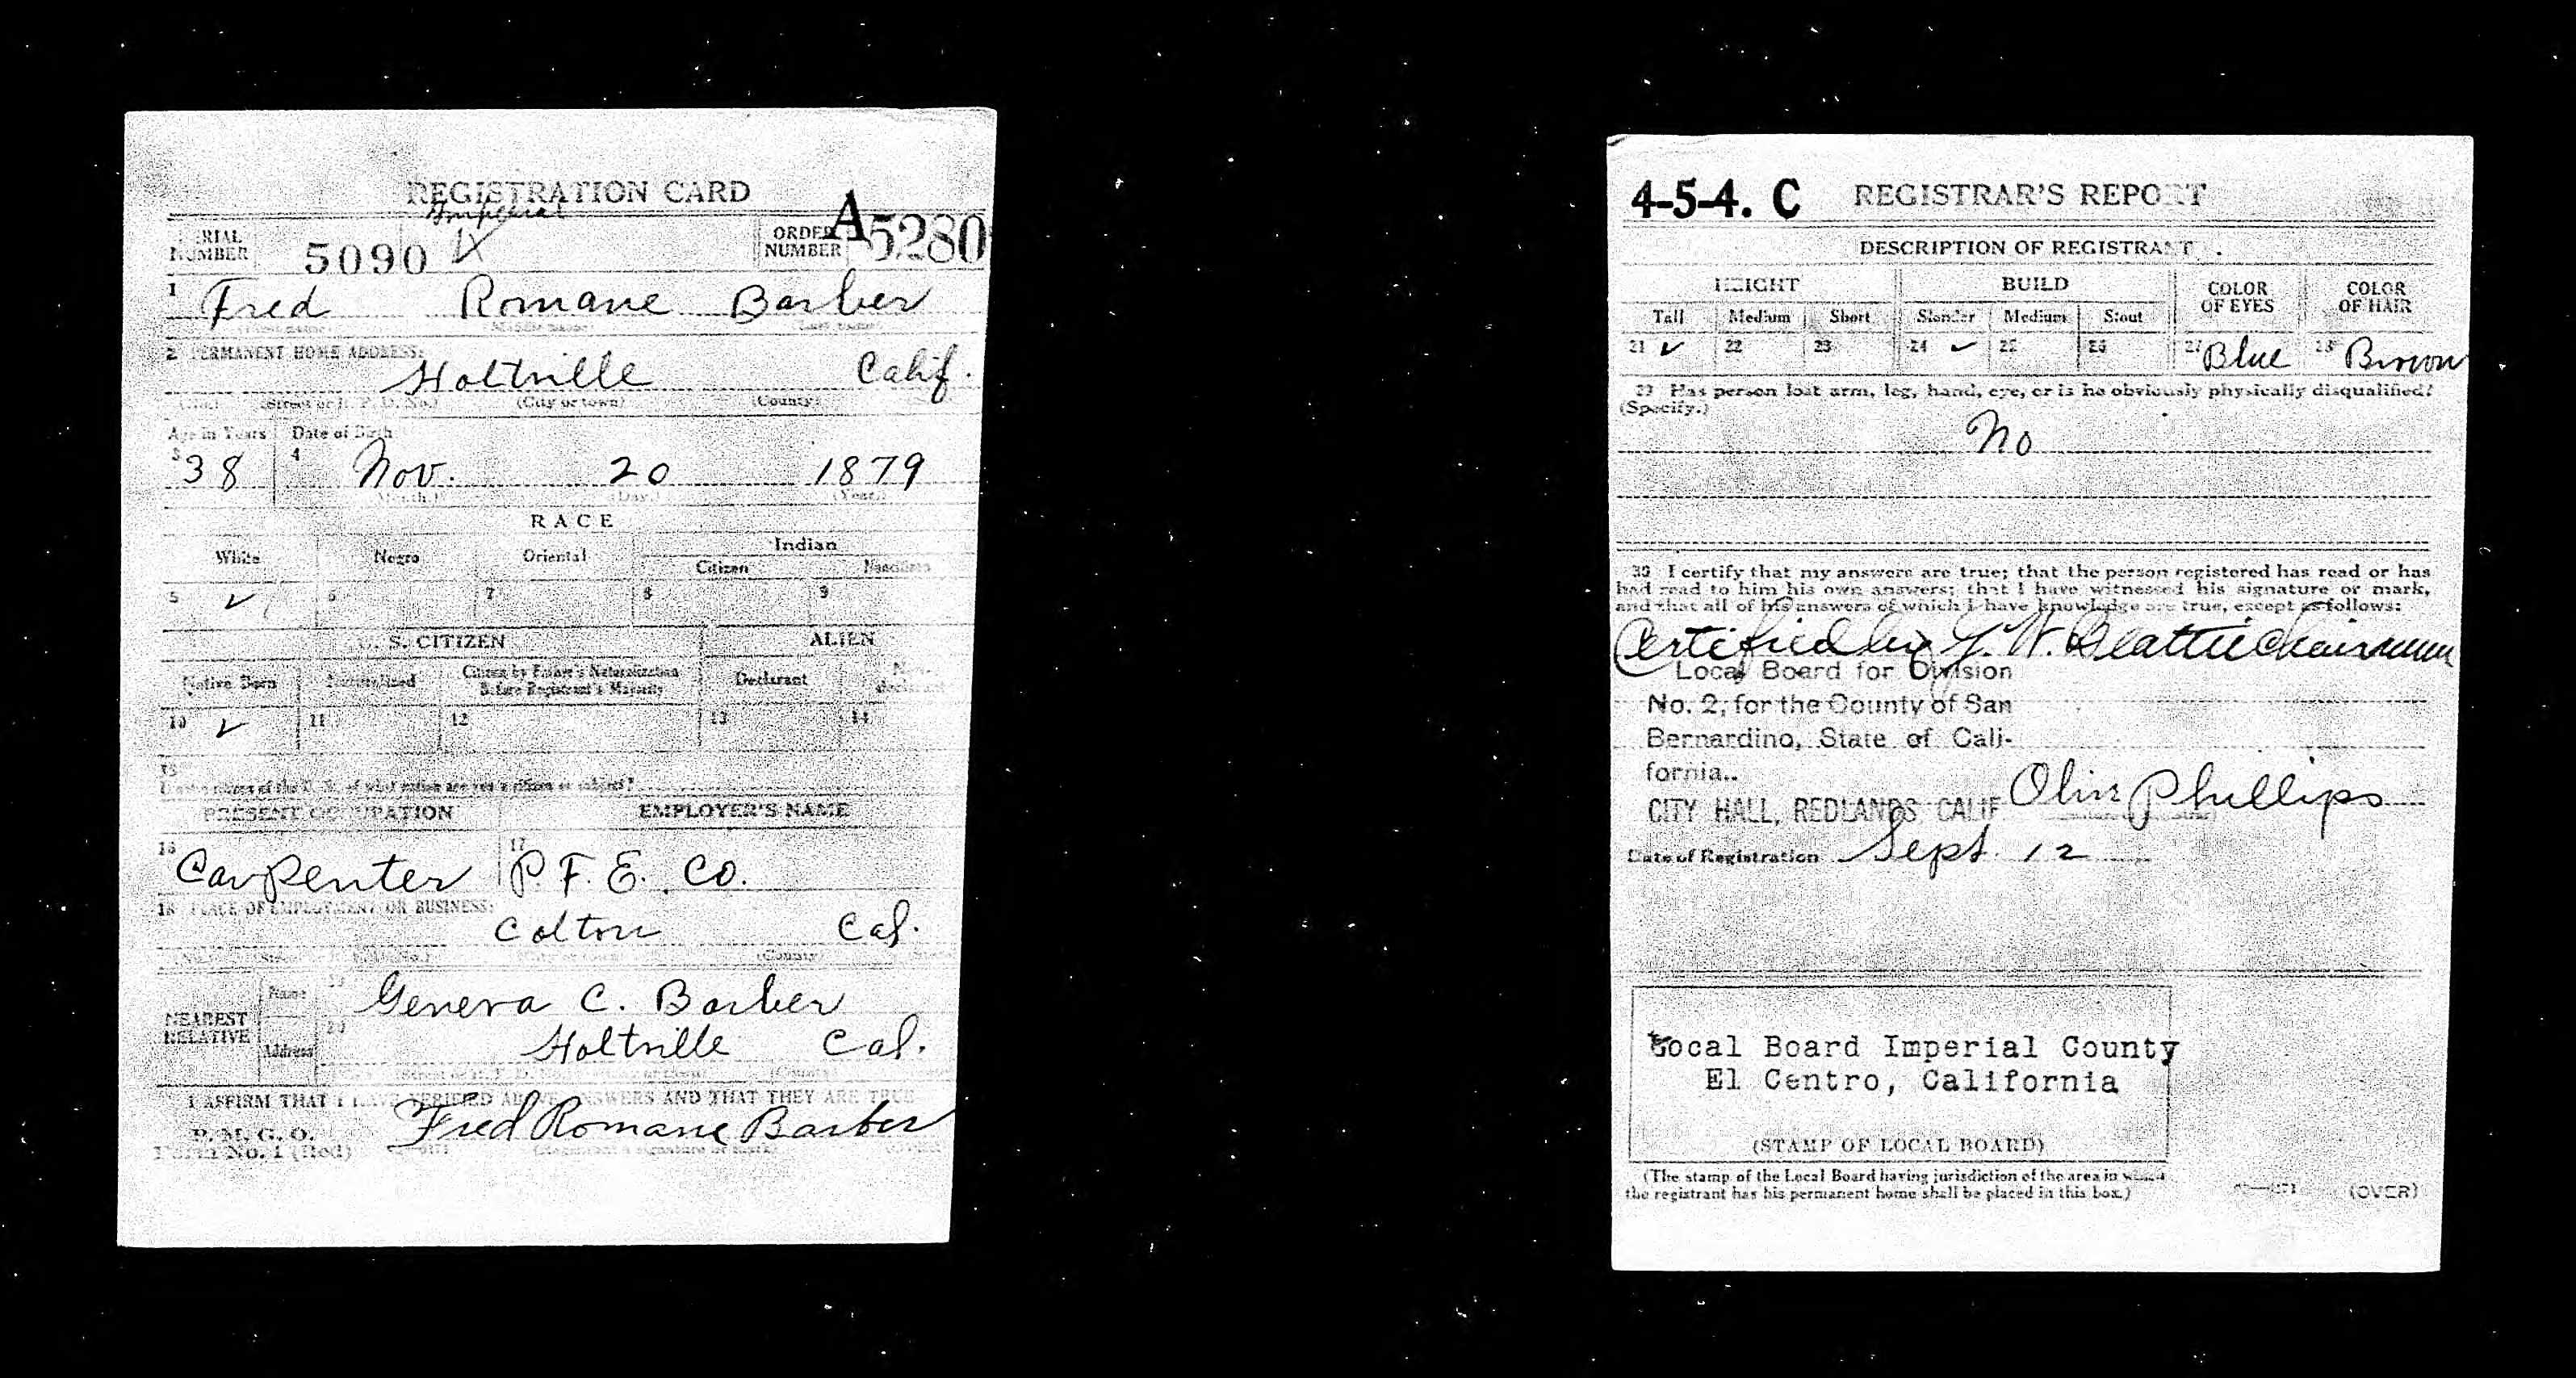 REGISTRATION CARD
Imperial
SERIAL NUMBER 5090 ORDER NUMBER A5280
1 Fred Romane Barber
2 PERMANENT HOME ADDRESS:
Holtville Calif.
(Street or R. F. D. No.) (City or town) (County)
Age in Years Date of Birth
3 38 4 Nov. 20 1879
(Month.) (Day.) (Year.)
RACE
White Negro Oriental Indian
Citizen Noncitizen
5 ✓ 6 7 8 9
U. S. CITIZEN ALIEN
Native Born Naturalized Citizen by Father's Naturalization Before Registrant's Majority Declarant Non-declarant
10 ✓ 11 12 13 14
15
If not a citizen of the U. S., of what nation are you a citizen or subject?
PRESENT OCCUPATION EMPLOYER'S NAME
16 Carpenter 17 P. F. E. Co.
18 PLACE OF EMPLOYMENT OR BUSINESS:
Colton Cal.
(County)
NEAREST RELATIVE Name 19 Geneva C. Barber
Address 20 Holtville Cal.
I AFFIRM THAT I HAVE VERIFIED ABOVE ANSWERS AND THAT THEY ARE TRUE
P. M. G. O.
Form No. 1 (Red) Fred Romane Barber
(Registrant's signature or mark)
4-5-4. C REGISTRAR'S REPORT
DESCRIPTION OF REGISTRANT
HEIGHT BUILD COLOR OF EYES COLOR OF HAIR
Tall Medium Short Slender Medium Stout
21 ✓ 22 23 24 ✓ 25 26 27 Blue 28 Brown
29 Has person lost arm, leg, hand, eye, or is he obviously physically disqualified?
(Specify.)
No
30 I certify that my answers are true; that the person registered has read or has
had read to him his own answers; that I have witnessed his signature or mark,
and that all of his answers of which I have knowledge are true, except as follows:
Certified by J. W. Beattie Chairman
Local Board for Division
No. 2, for the County of San
Bernardino, State of Cali-
fornia..
Olive Phillips
CITY HALL, REDLANDS, CALIF.
Date of Registration Sept. 12
Local Board Imperial County
El Centro, California
(STAMP OF LOCAL BOARD)
(The stamp of the Local Board having jurisdiction of the area in which
the registrant has his permanent home shall be placed in this box.)
(OVER)